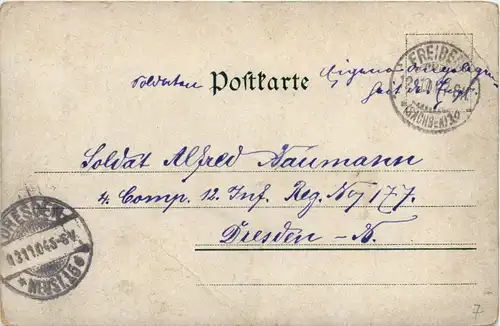 Soldaten Postkarte Eigene Angelegen-
heit des Empf.
FREIBERG
(SACHSEN)
Soldat Alfred Naumann
4 Comp. 12. Inf. Reg. No 177.
Dresden – N.
DRESDEN-
*NEUST.16
7